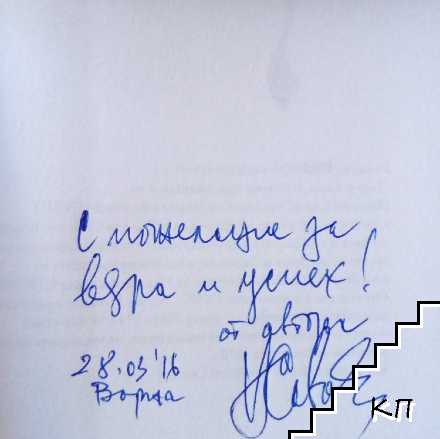 С пожелание за
вяра и успех!
от автора
28.03'16
Варна
КП